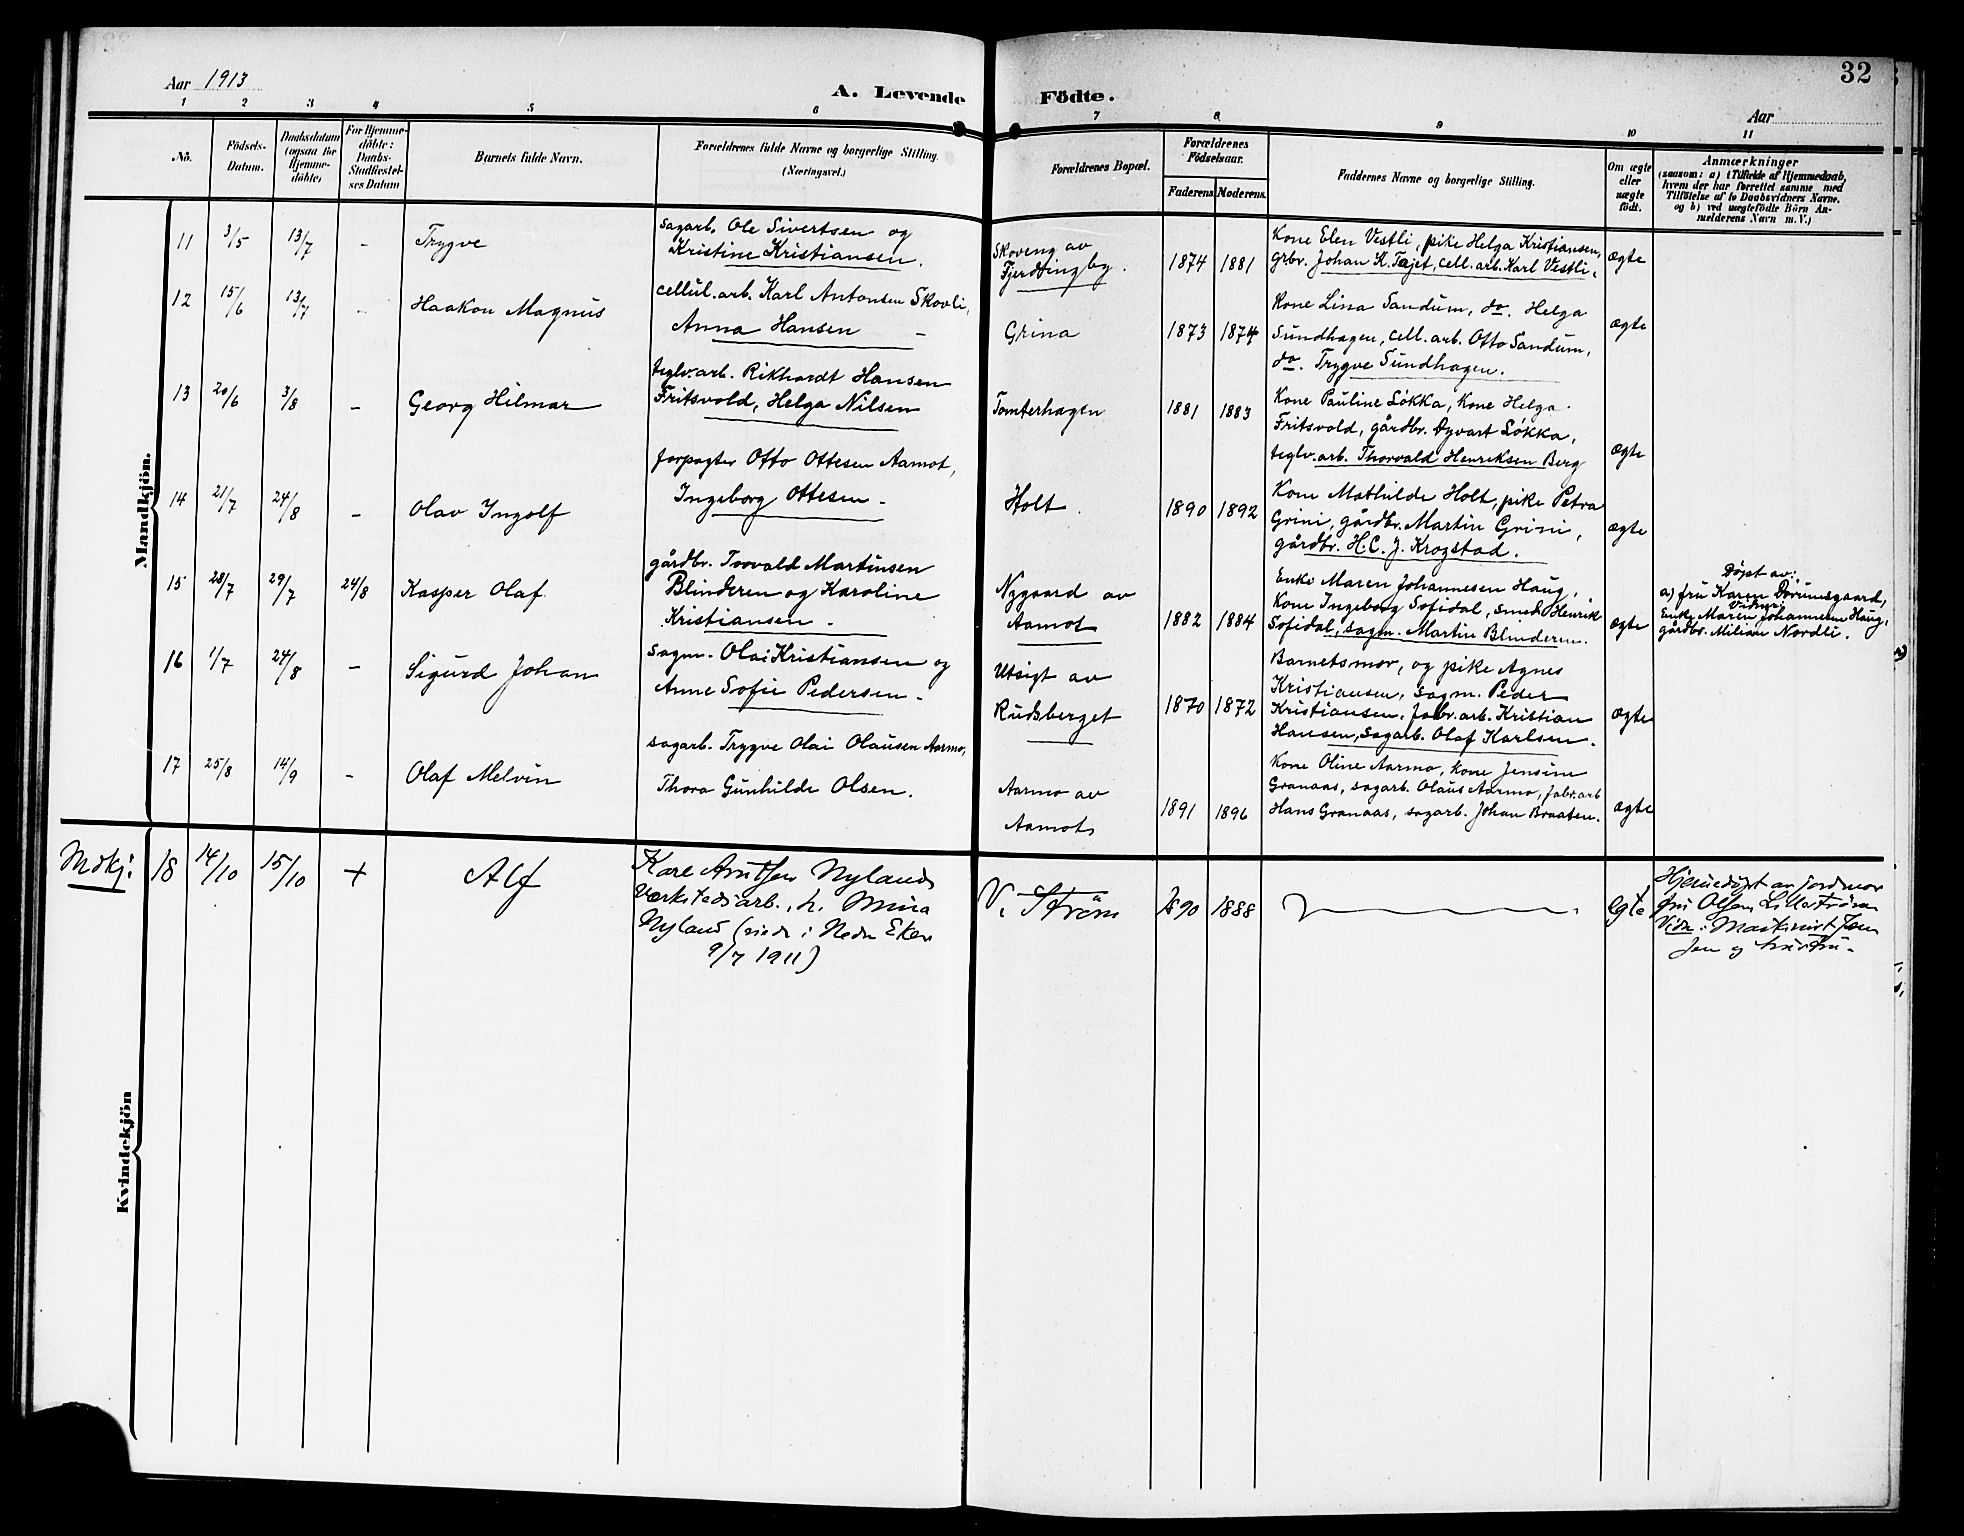 32
Aar 1913
A. Levende Födte.
Aar
1 2 3 4 5 6 7 8 9 10 11
No.
Födsels-Datum.
Daabsdatum (ogsaa for Hjemme-döbte)
For Hjemme-döbte: Daabs-Stadfæstel-ses Datum
Barnets fulde Navn.
Forældrenes fulde Navne og borgerlige Stilling. (Næringsvei.)
Forældrenes Bopæl.
Forældrenes Födselsaar.
Faderens. Moderens.
Faddernes Navne og borgerlige Stilling.
Om ægte eller uægte födt.
Anmærkninger
(saasom: a) i Tilfælde af Hjemmedaab,
hvem der har forrettet samme med
Tilföielse af to Daabsvidners Navne.
og b) ved uægtefödte Börn An-
melderens Navn m. V.)
Mandkjön.
11 3/5 13/7 - Trygve
Sagarb. Ole Sivertsen og
Kristine Kristiansen.
Skoveng av
Fjerdingby.
1874 1881
Kone Elen Vestli, pike Helga Kristiansen,
grbr. Johan K. Tajet, cell. arb. Karl Vestli.
ægte
12 15/6 13/7 - Haakon Magnus
cellul. arb. Karl Antonsen Skovli,
Anna Hansen -
Grina
1873 1874
Kone Lina Sandum, do. Helga
Sundhagen, cell. arb. Otto Sandum,
do. Trygve Sundhagen.
ægte
13 20/6 3/8 - Georg Hilmar
teglv. arb. Rikhardt Hansen
Fritsvold, Helga Nilsen
Tomterhagen
1881 1883
Kone Pauline Løkka, Kone Helga
Fritsvold, gårdbr. Dyvart Løkka,
teglv. arb. Thorvald Henriksen Berg
ægte
14 21/7 24/8 - Olav Ingolf
forpagter Otto Ottesen Aamot,
Ingeborg Ottesen -
Holt.
1890 1892
Kone Mathilde Holt, pike Petra
Grini, gårdbr. Martin Grini,
gårdbr. H. C. J. Krogstad.
ægte
15 28/7 29/7 24/8 Kasper Olaf
gårdbr. Torvald Martinsen
Blinderen og Karoline
Kristiansen -
Nygaard av
Aamot
1882 1884
Enke Maren Johannesen Haug,
Kone Ingeborg Sofidal, smed Henrik
Sofidal, sagm. Martin Blinderen.
ægte
Døpt av:
a) fru Karen Dørumsgaard,
Vidner:
Enke Maren Johannesen Haug,
gårdbr. Milian Nordli.
16 1/7 24/8 - Sigurd Johan
Sagm. Olai Kristiansen og
Anne Sofie Pedersen -
Utsigt av
Rudsberget
1870 1872
Barnetsmor, og pike Agnes
Kristiansen, sagm. Peder
Kristiansen, fabr. arb. Kristian
Hansen, Sagarb. Olaf Karlsen.
ægte
17 25/8 14/9 - Olaf Melvin
sagarb. Trygve Olai Olausen Aarmo,
Thora Gunhilde Olsen.
Aarmo av
Aamot
1891 1896
Kone Oline Aarmo, Kone Jensine
Granaas, sagarb. Olaus Aarmo, fabr. arb
Hans Granaas, sagarb. Johan Braaten.
ægte
Mdkj: 18 14/10 15/10 + Alf
Nylands
Værkstedsarb., h. Mina
Nyland (viede i Nedr Eker
9/7 1911)
V. Strøm
1890 1888
egte
Hjemedøpt av jordmor
fru Olsen Lillestrøm
Vidn: Maskinist Jen
sen og hustru.
Kvindekjön